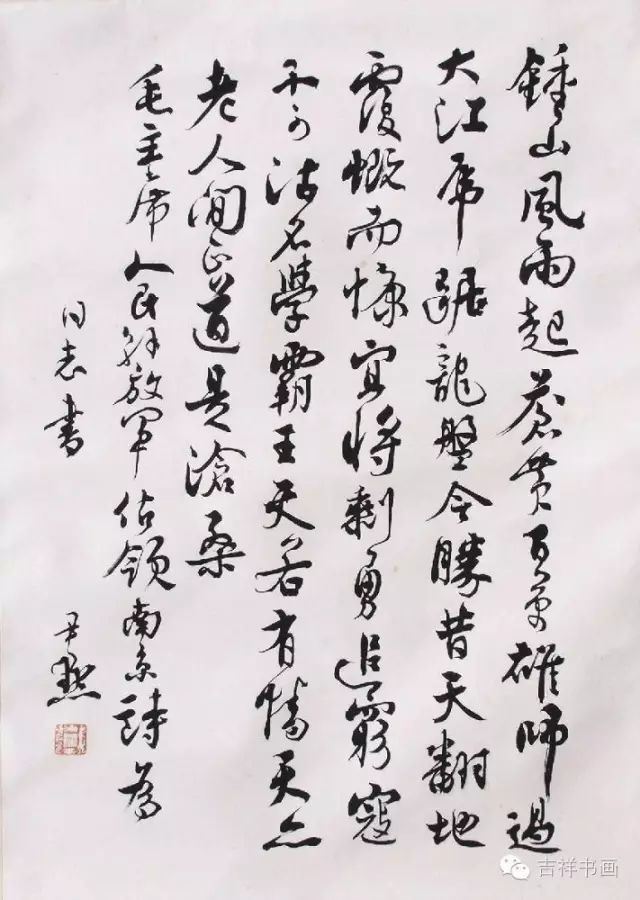 鍾山風雨起蒼黃百萬雄師過
大江虎踞龍盤今勝昔天翻地
覆慨而慷宜將剩勇追窮寇
不可沽名學霸王天若有情天亦
老人間正道是滄桑
毛主席人民解放軍佔領南京詩為
同志書
尹默
吉祥书画